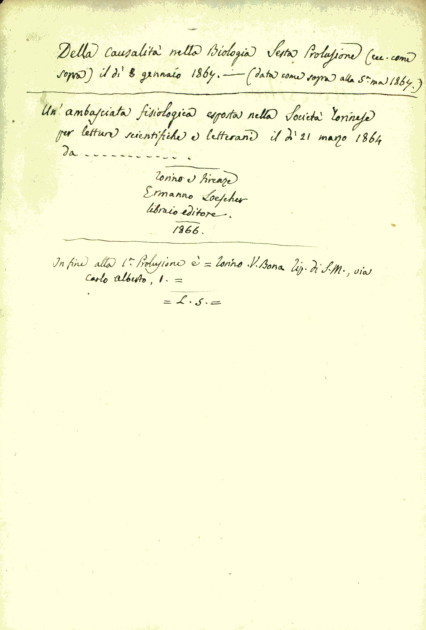 Della causalità nella Biologia Sesta Prolusione (ecc. come
sopra) il dì 8 gennaio 1867. — (data come sopra alla 5.ª ma 1867.)
Un' ambasciata fisiologica esposta nella Società torinese
per letture scientifiche e letterarie il dì 21 marzo 1864
da - - - - - - - - - - - .
Torino e Firenze
Ermanno Loescher
libraio editore.
1866.
In fine alla 1.ª Prolusione è = Torino . V. Bona Tip. di S. M., via
Carlo Alberto, 1. =
= L. 5. =